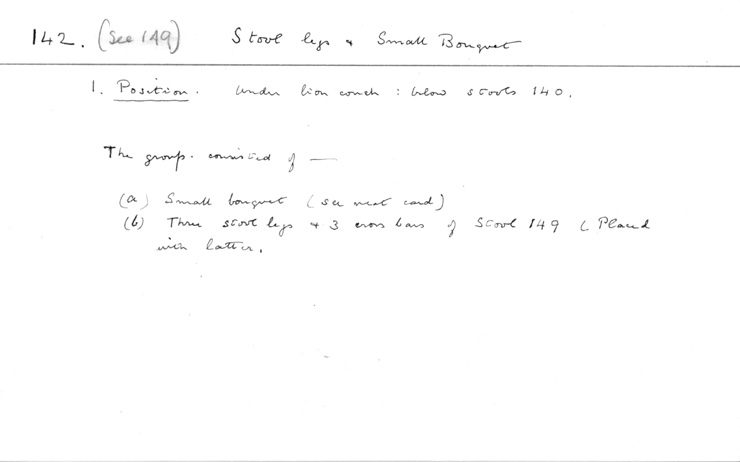 142. (See 149) Stool legs & Small Bouquet
1. Position. Under lion couch : below stools 140.
The group. consisted of —
(a) Small bouquet (see next card)
(b) Three stool legs + 3 cross bars of Stool 149 (Placed
with latter.